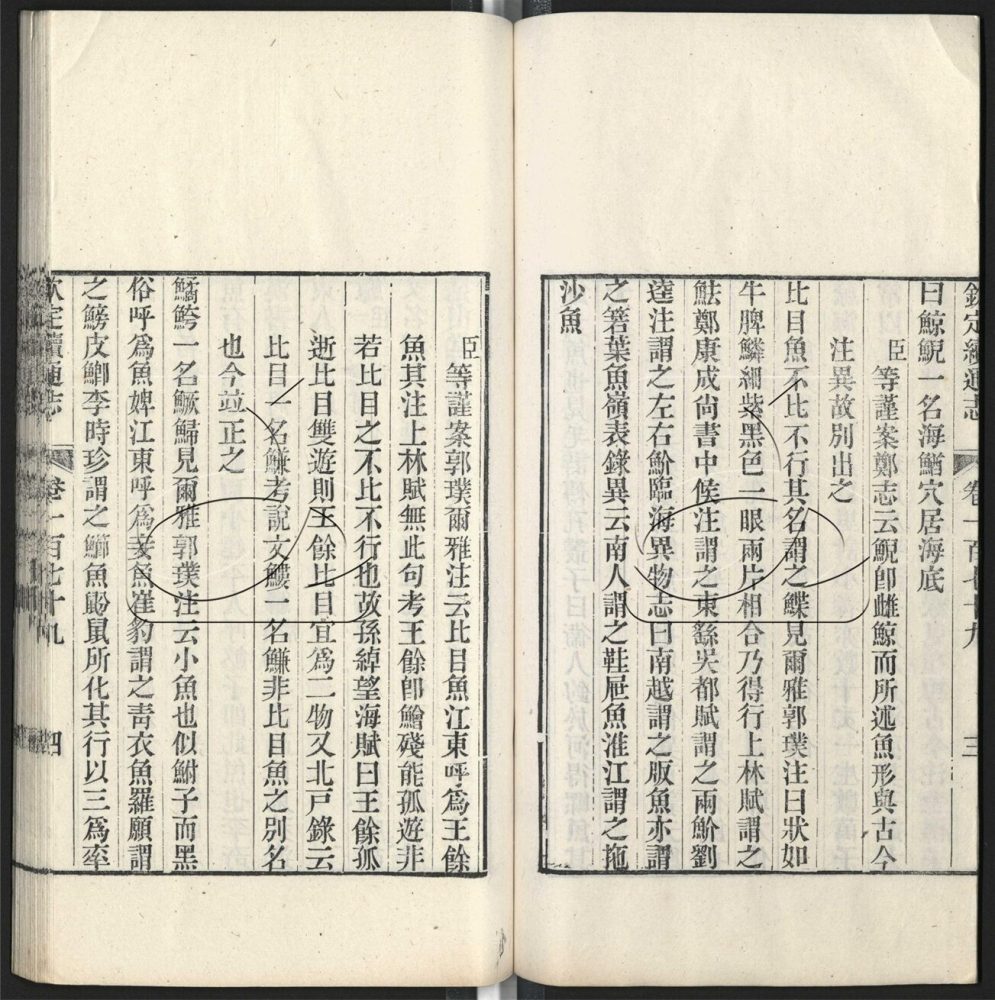 欽定續通志 卷一百七十九 三
曰鯨鯢一名海鰌穴居海底
臣等謹案鄭志云鯢卽雌鯨而所述魚形與古今
注異故別出之
比目魚不比不行其名謂之鰈見爾雅郭璞注曰狀如
牛脾鱗細紫黑色一眼兩片相合乃得行上林賦謂之
魼鄭康成尚書中候注謂之東鰩吳都賦謂之兩魪劉
逵注謂之左右魪臨海異物志曰南越謂之版魚亦謂
之箬葉魚嶺表錄異云南人謂之鞋屜魚淮江謂之拖
沙魚
臣等謹案郭璞爾雅注云比目魚江東呼爲王餘
魚其注上林賦無此句考王餘卽鱠殘能孤遊非
若比目之不比不行也故孫綽望海賦曰王餘孤
逝比目雙遊則王餘比目宜爲二物又北戸錄云
比目一名鰜考說文鰜一名鰜非比目魚之別名
也今竝正之
鱊鮬一名鱖鯞見爾雅郭璞注云小魚也似鮒子而黑
俗呼爲魚婢江東呼爲妾魚崔豹謂之靑衣魚羅願謂
之鰟皮鯽李時珍謂之鰤魚鼢鼠所化其行以三爲率
欽定續通志 卷一百七十九 四